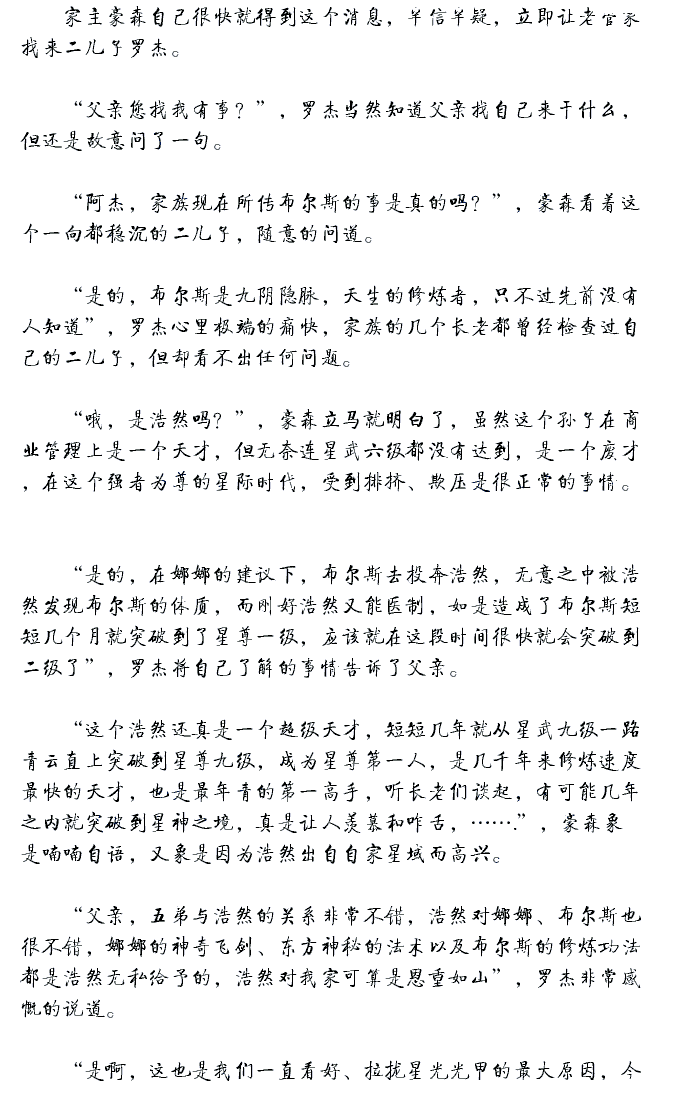 家主豪森自己很快就得到这个消息，半信半疑，立即让老管家
找来二儿子罗杰。
“父亲您找我有事？”，罗杰当然知道父亲找自己来干什么，
但还是故意问了一句。
“阿杰，家族现在所传布尔斯的事是真的吗？”，豪森看着这
个一向都稳沉的二儿子，随意的问道。
“是的，布尔斯是九阴隐脉，天生的修炼者，只不过先前没有
人知道”，罗杰心里极端的痛快，家族的几个长老都曾经检查过自
己的二儿子，但却看不出任何问题。
“哦，是浩然吗？”，豪森立马就明白了，虽然这个孙子在商
业管理上是一个天才，但无奈连星武六级都没有达到，是一个废才
，在这个强者为尊的星际时代，受到排挤、欺压是很正常的事情。
“是的，在娜娜的建议下，布尔斯去投奔浩然，无意之中被浩
然发现布尔斯的体质，而刚好浩然又能医制，如是造成了布尔斯短
短几个月就突破到了星尊一级，应该就在这段时间很快就会突破到
二级了”，罗杰将自己了解的事情告诉了父亲。
“这个浩然还真是一个超级天才，短短几年就从星武九级一路
青云直上突破到星尊九级，成为星尊第一人，是几千年来修炼速度
最快的天才，也是最年青的第一高手，听长老们谈起，有可能几年
之内就突破到星神之境，真是让人羡慕和咋舌，…….”，豪森象
是喃喃自语，又象是因为浩然出自自家星域而高兴。
“父亲，五弟与浩然的关系非常不错，浩然对娜娜、布尔斯也
很不错，娜娜的神奇飞剑、东方神秘的法术以及布尔斯的修炼功法
都是浩然无私给予的，浩然对我家可算是恩重如山”，罗杰非常感
慨的说道。
“是啊，这也是我们一直看好、拉拢星光光甲的最大原因，今